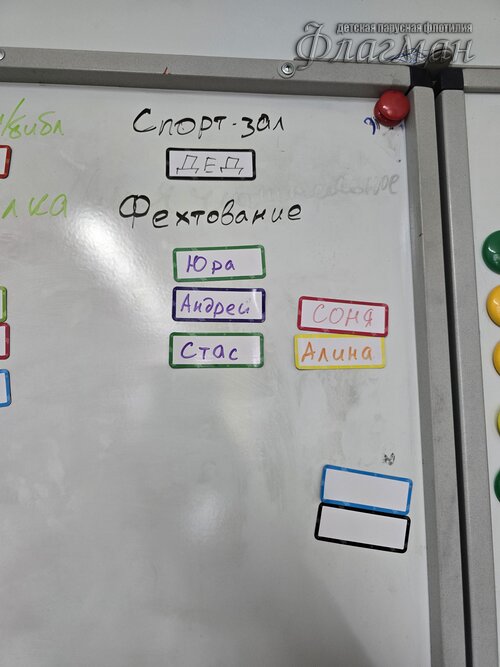 детская парусная флотилия
Флагман
Спорт-зал
ДЕД
лка
Фехтование
Юра
Андрей
Соня
Стас
Алина